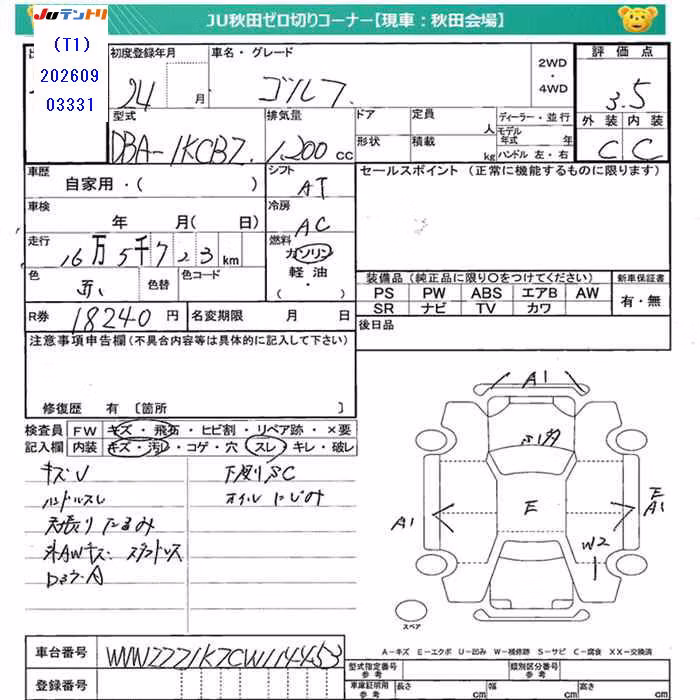 Juテントリ
JU秋田ゼロ切りコーナー【現車：秋田会場】
(T1)
202609
03331
初度登録年月
車名・グレード
2WD
・
4WD
評価点
24
月
ゴルフ
3.5
型式
排気量
ドア
定員
人
ディーラー・並行
外装
内装
DBA-1KCBZ
1,200 cc
形状
積載
kg
モデル年式
年
ハンドル 左・右
C
C
車歴
自家用・( )
シフト
AT
セールスポイント (正常に機能するものに限ります)
車検
年 月( 日)
冷房
AC
走行
16万5千723km
燃料
ガソリン
軽油
・
( )
色
色替
色コード
装備品 (純正品に限り〇をつけてください)
新車保証書
PS
PW
ABS
エアB
AW
有・無
SR
ナビ
TV
カワ
R券
18240円
名変期限
月 日
後日品
注意事項申告欄(不具合内容等は具体的に記入して下さい)
修復歴 有 〔箇所 〕
検査員
FW
キズ・飛石・ヒビ割・リペア跡・×要
記入欄
内装
キズ・汚レ・コゲ・穴 スレ・キレ・破レ
キズU
ハンドルスレ
天張りたるみ
外AWキズ
下廻りSC
オイルにじみ
A1
E
A1
E
A1
W2
スペア
A-キズ E-エクボ U-凹み W-補修跡 S-サビ C-腐食 XX-交換済
車台番号
WVWZZZ1KZCW114453
登録番号
型式指定番号
参考
類別区分番号
参考
車庫証明用
参考
長さ
cm
幅
cm
高さ
cm